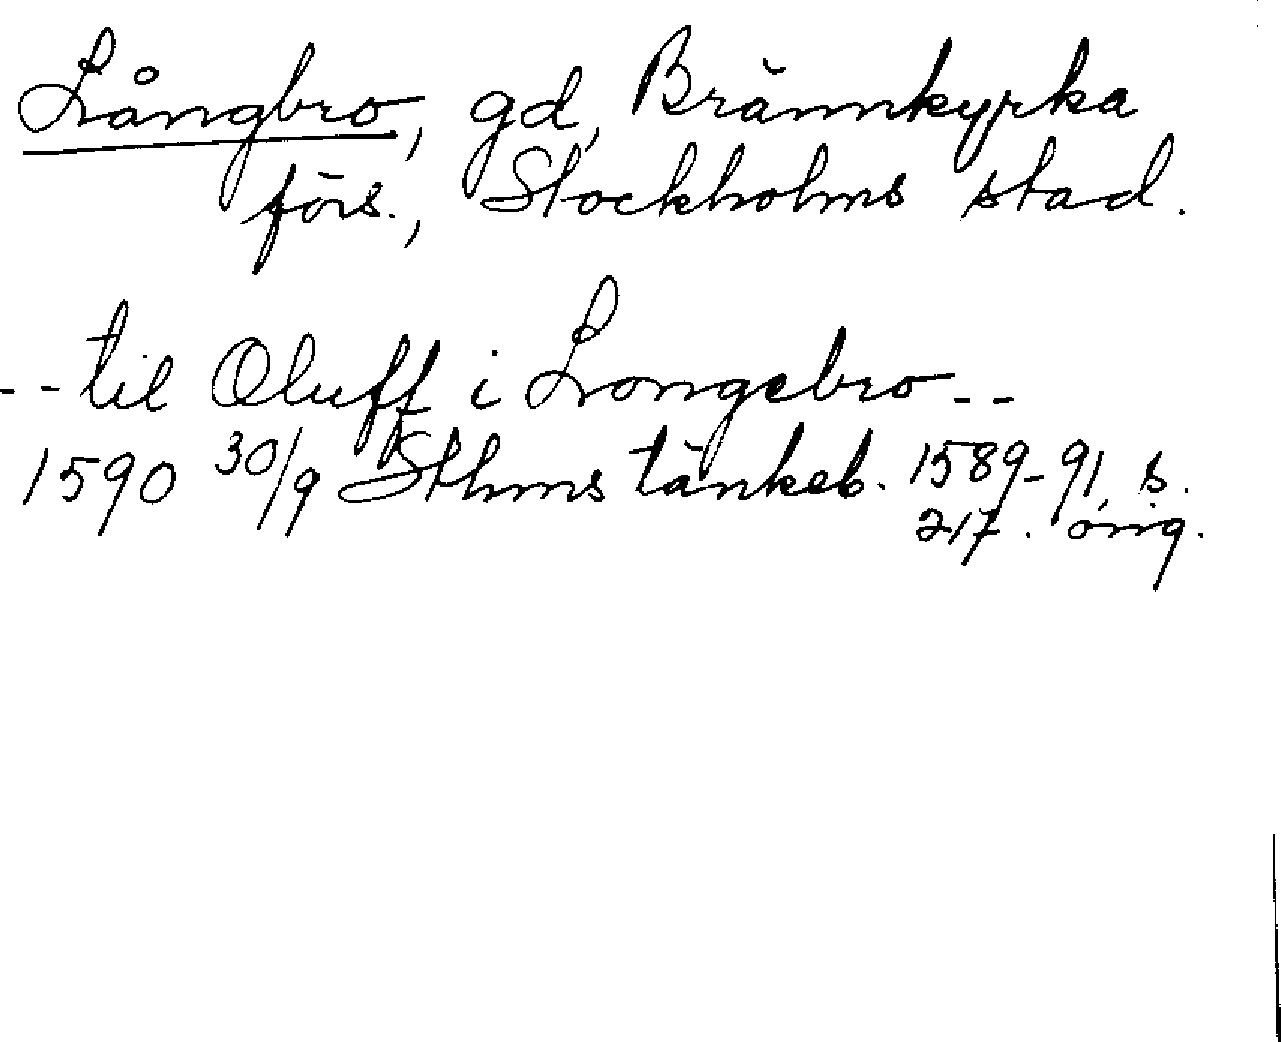 Långbro, gd, Brännkyrka
förs., Stockholms stad.
-- til Oluff i Longebro --
1590 30/9 Sthms tänkeb. 1589-91, s.
217. orig.